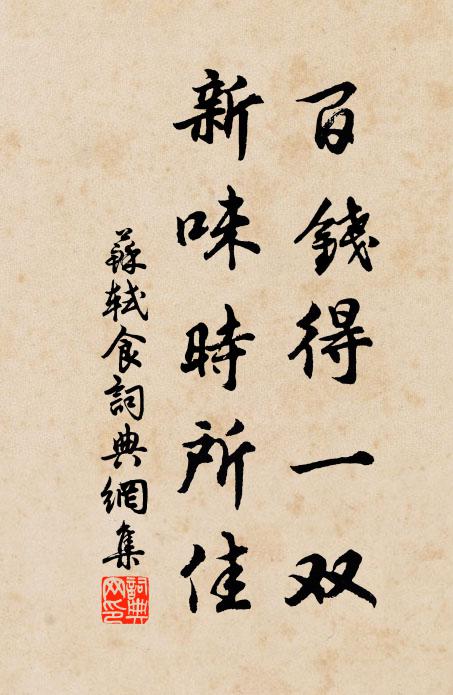 百錢得一双
新味時所佳
蘇軾食詞典網集
詞典網印